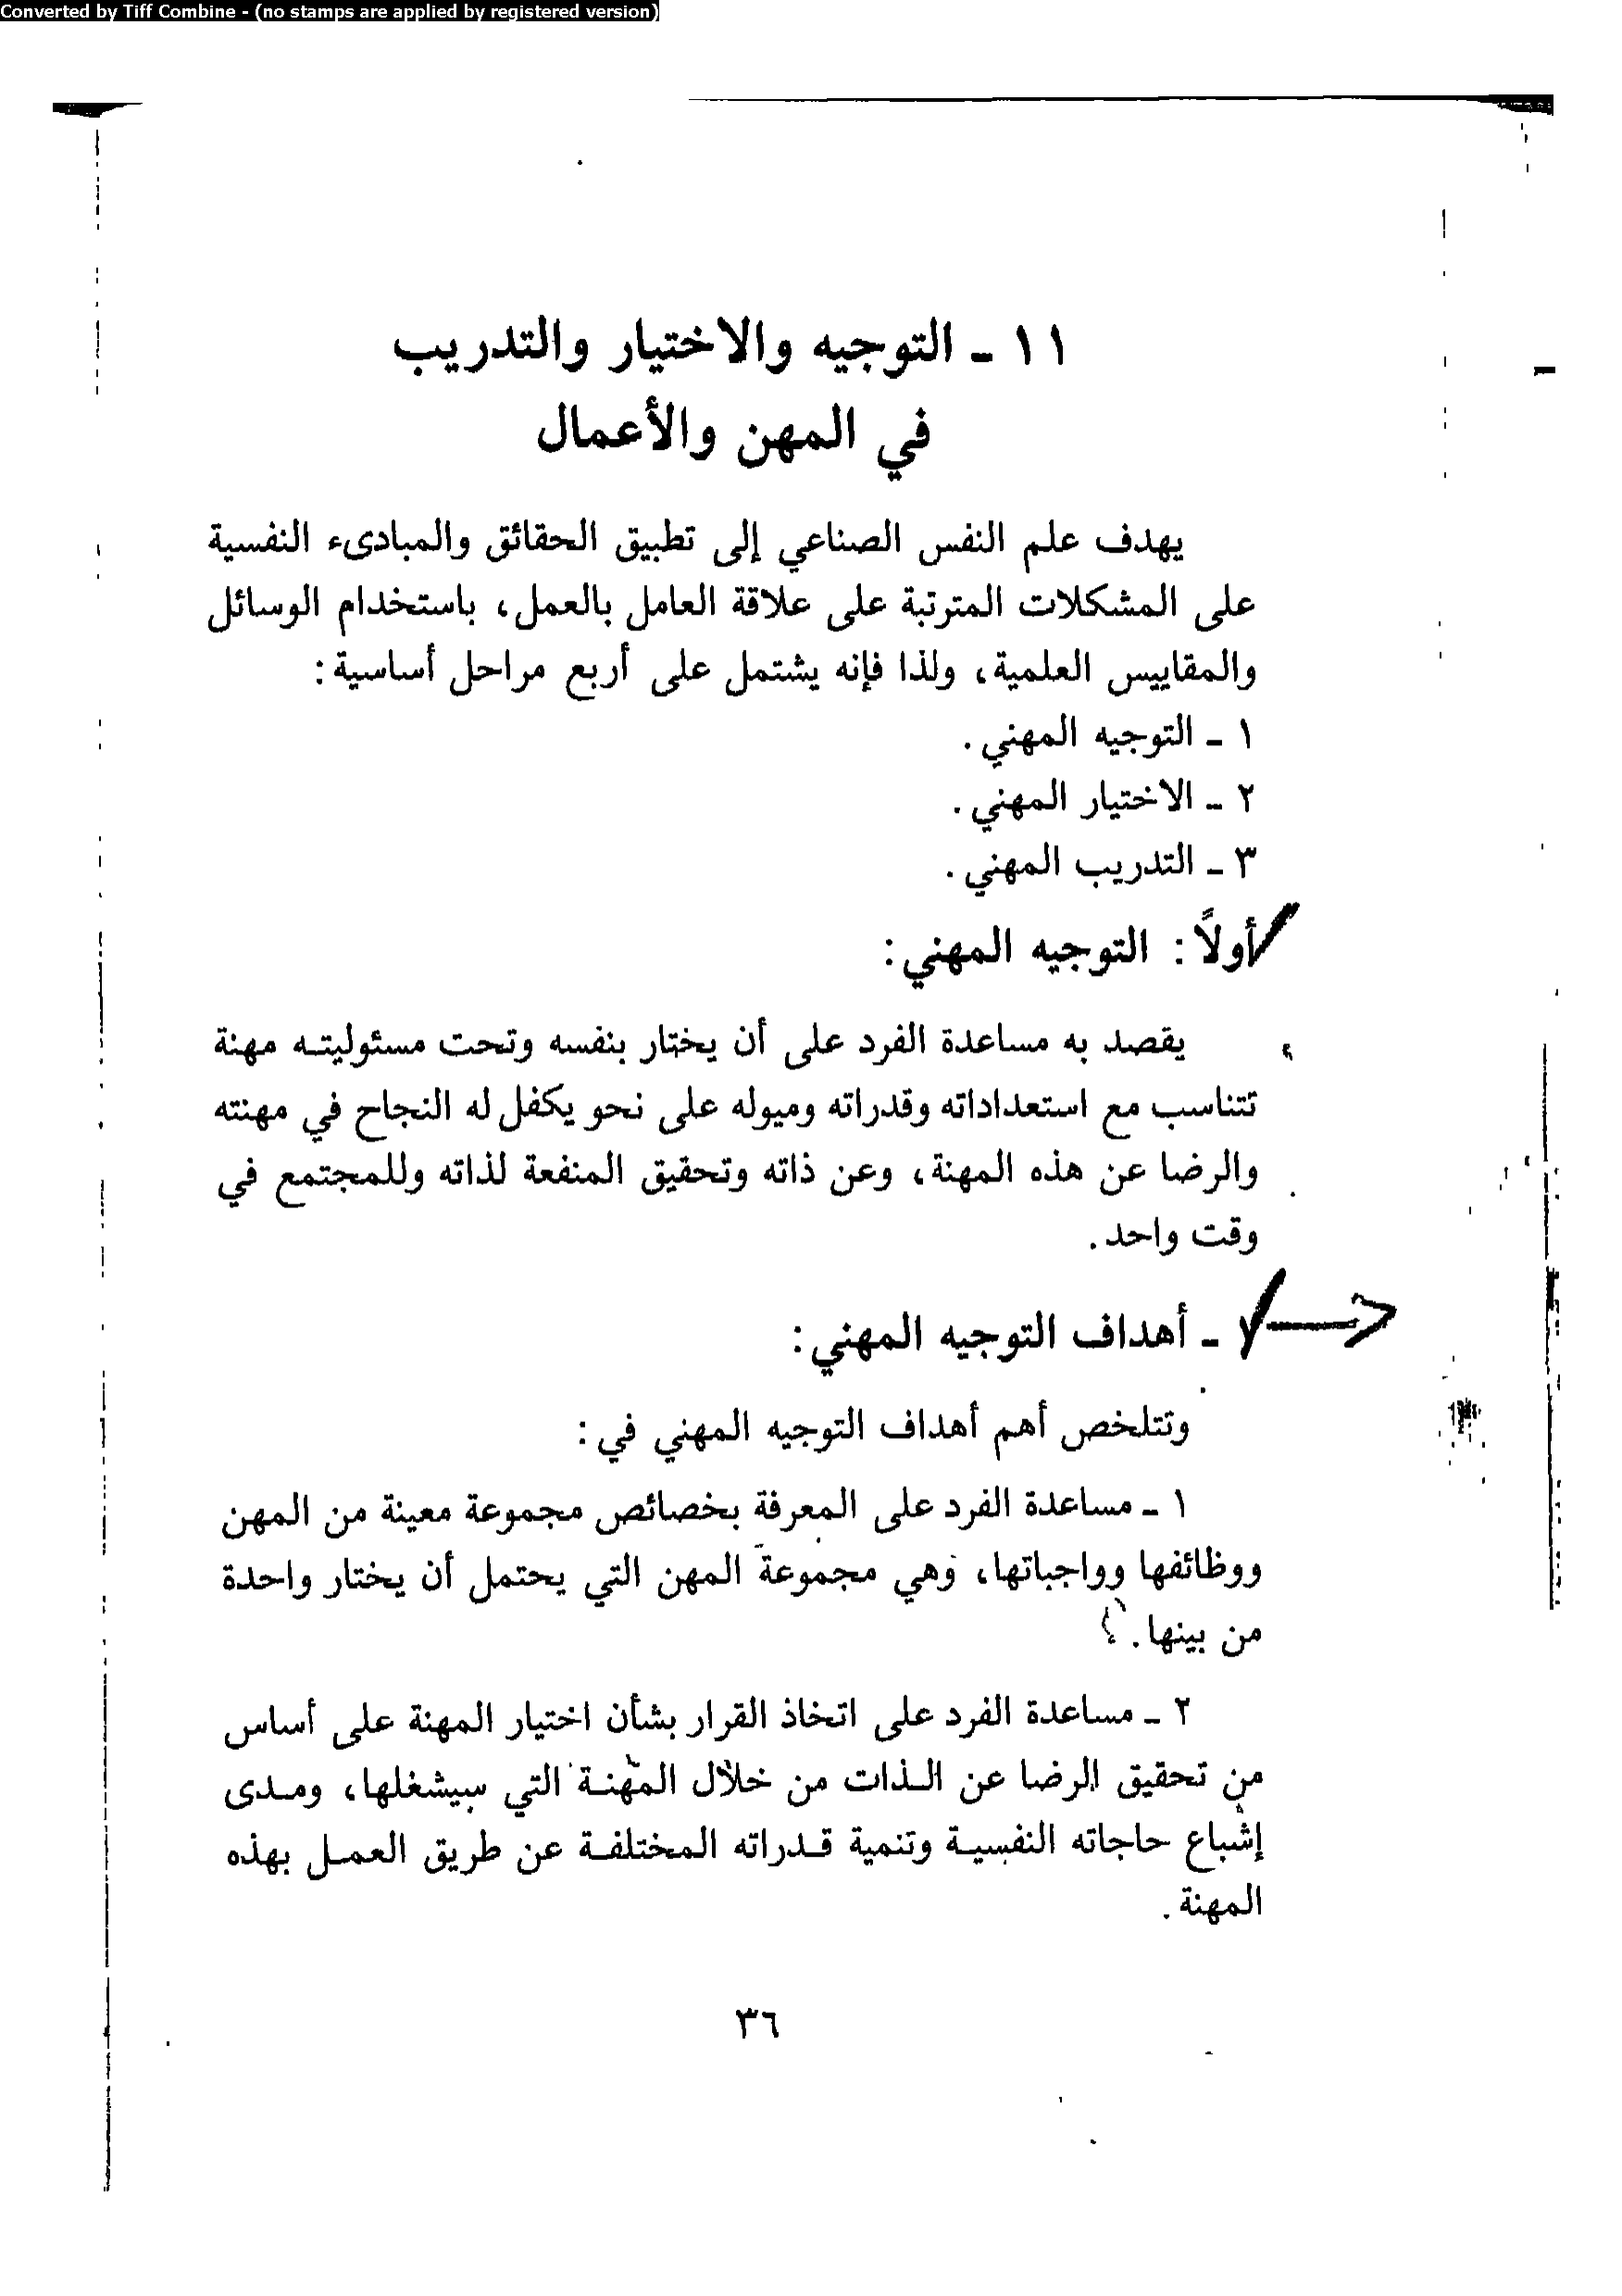 Converted by Tiff Combine - (no stamps are applied by registered version)
١١ - التوجيه والاختيار والتدريب
في المهن والأعمال
يهدف علم النفس الصناعي إلى تطبيق الحقائق والمبادىء النفسية
على المشكلات المترتبة على علاقة العامل بالعمل، باستخدام الوسائل
والمقاييس العلمية، ولذا فإنه يشتمل على أربع مراحل أساسية:
١ - التوجيه المهني.
٢ - الاختيار المهني.
٣ - التدريب المهني.
أولاً: التوجيه المهني:
يقصد به مساعدة الفرد على أن يختار بنفسه وتحت مسئوليته مهنة
تتناسب مع استعداداته وقدراته وميوله على نحو يكفل له النجاح في مهنته
والرضا عن هذه المهنة، وعن ذاته وتحقيق المنفعة لذاته وللمجتمع في
وقت واحد.
- أهداف التوجيه المهني:
وتتلخص أهم أهداف التوجيه المهني في:
١ - مساعدة الفرد على المعرفة بخصائص مجموعة معينة من المهن
ووظائفها وواجباتها، وهي مجموعة المهن التي يحتمل أن يختار واحدة
من بينها.
٢ - مساعدة الفرد على اتخاذ القرار بشأن اختيار المهنة على أساس
من تحقيق الرضا عن الذات من خلال المهنة التي سيشغلها، ومدى
إشباع حاجاته النفسية وتنمية قدراته المختلفة عن طريق العمل بهذه
المهنة.
٣٦